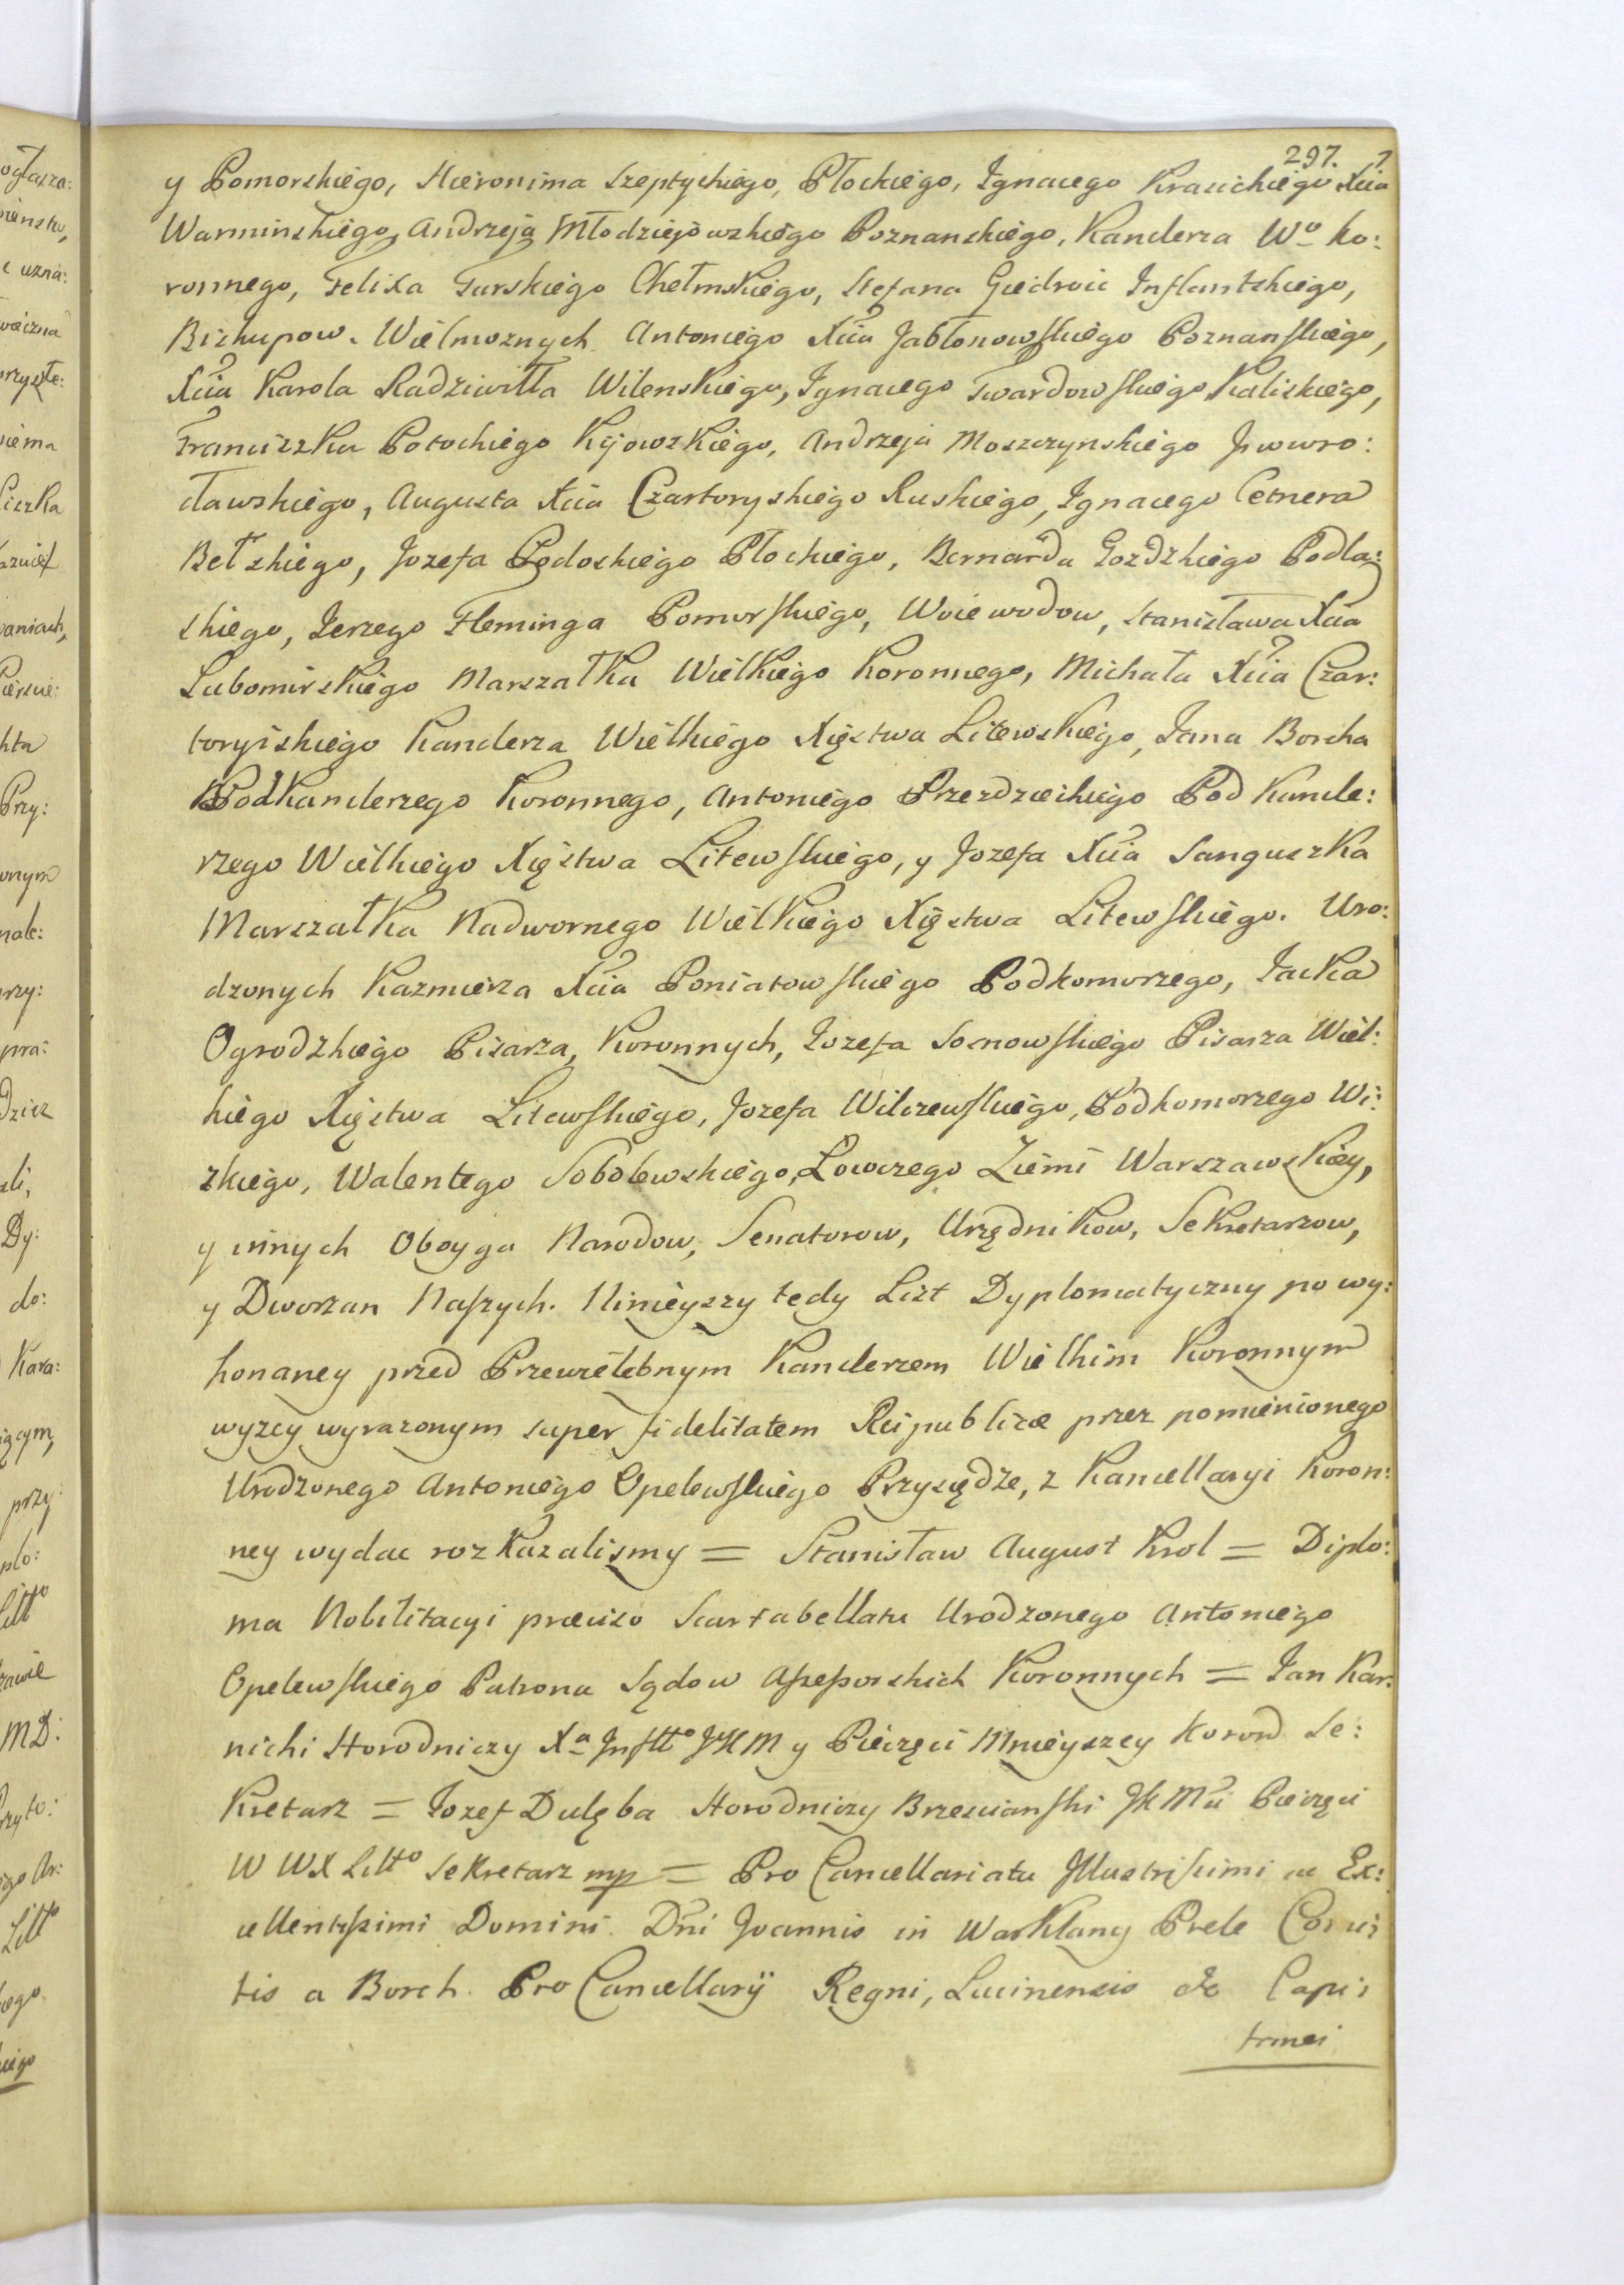 297.
y Pomorskiego, Hieronima Szeptyckiego, Płockiego, Ignacego Krasickiego Xcia
Warminskiego, Andrzeja Młodziejowskiego Poznanskiego, Kanclerza Wo Ko:
ronnego, Felixa Turskiego Chełmskiego, Stefana Giedroic Inflantskiego,
Biskupow. Wielmoznych Antoniego Xcia Jabłonowskiego Poznanskiego,
Xcia Karola Radziwiłła Wilenskiego, Ignacego Twardowskiego Kaliskiego,
Franciszka Potockiego Kijowskiego, Andrzeja Moszczynskiego Inowro:
cławskiego, Augusta Xcia Czartoryskiego Ruskiego, Ignacego Cetnera
Bełskiego, Jozefa Podoskiego Płockiego, Bernarda Gozdzkiego Podla:
skiego, Jerzego Fleminga Pomorskiego, Woiewodow, Stanisława Xcia
Lubomirskiego Marszałka Wielkiego Koronnego, Michała Xcia Czar:
toryiskiego Kanclerza Wielkiego Xięstwa Litewskiego, Jana Borcha
Podkanclerzego Koronnego, Antoniego Przezdzieckiego Pod Kancle:
rzego Wielkiego Xięstwa Litewskiego, y Jozefa Xcia Sanguszka
Marszałka Nadwornego Wielkiego Xięstwa Litewskiego. Uro:
dzonych Kazmierza Xcia Poniatowskiego Podkomorzego, Jacka
Ogrodzkiego Pisarza, Koronnych, Jozefa Sosnowskiego Pisarza Wiel:
kiego Xięstwa Litewskiego, Jozefa Wilczewskiego, Podkomorzego Wi:
zkiego, Walentego Sobolewskiego, Łowczego Ziemi Warszawskiey,
y innych Oboyga Narodow, Senatorow, Urzędnikow, Sekretarzow,
y Dworzan Naszych. Ninieyszy tedy List Dyplomatyczny po wy:
konaney przed Przewielebnym Kanclerzem Wielkim Koronnym
wyzey wyrazonym super fidelitatem Reipublicæ przez pomienionego
Urodzonego Antoniego Opelewskiego Przysiędze, z Kancellaryi Koron:
ney wydac rozkazalismy = Stanisław August Krol = Diplo:
ma Nobilitacyi præciso Scartabellatu Urodzonego Antoniego
Opelewskiego Patrona Sądow Assessorskich Koronnych = Jan Kar:
nicki Horodniczy Xa Inftto JKM y Pieczęci Mnieyszey Koron Se:
kretarz = Jozef Dulęba Horodniczy Brzescianski JKMci Pieczęci
W WX Litto Sekretarz mp = Pro Cancellariatu Illustrissimi ac Ex:
cellentissimi Domini Dñi Joannis in Warklany Prele Comi:
tis a Borch Pro Cancellarÿ Regni, Lucinensis &c Capi:
tanei